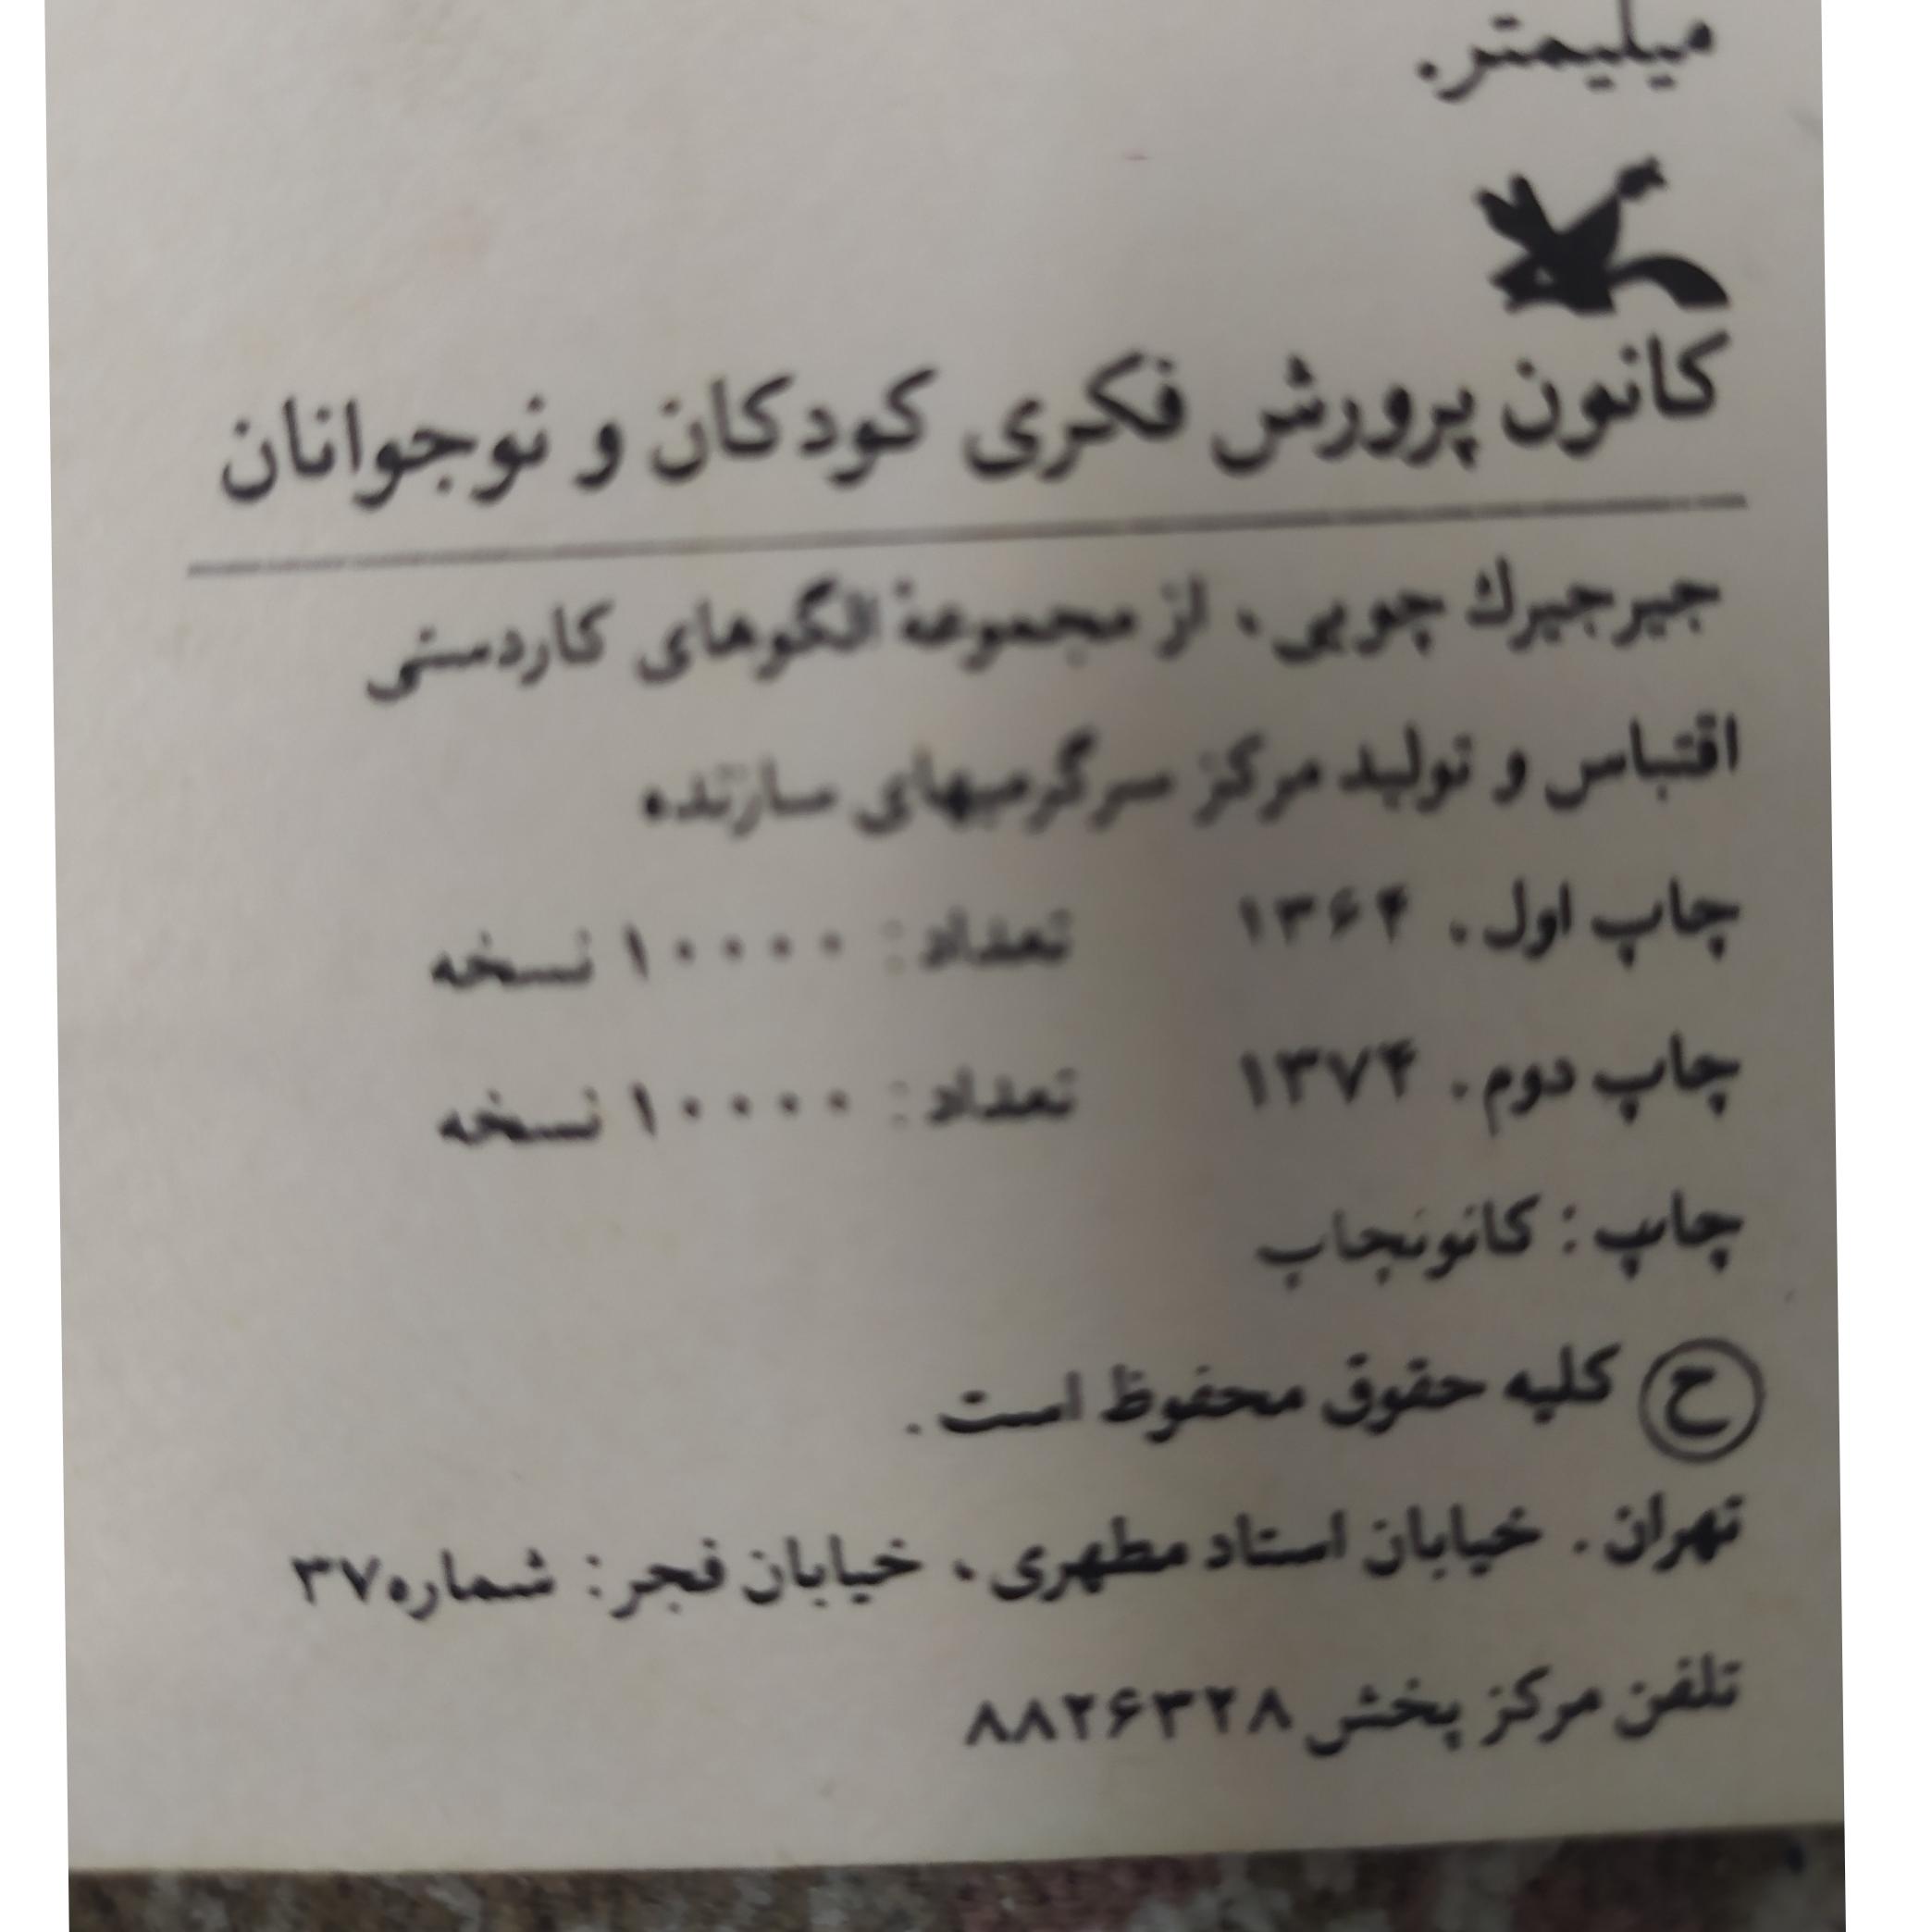 میلیمتر.
کانون پرورش فکری کودکان و نوجوانان
جیرجیرك چوبی، از مجموعهٔ الگوهای کاردستی
اقتباس و تولید مرکز سرگرمیهای سازنده
چاپ اول، ۱۳۶۴ تعداد: ۱۰۰۰۰ نسخه
چاپ دوم، ۱۳۷۴ تعداد: ۱۰۰۰۰ نسخه
چاپ: کانونچاپ
ح کلیه حقوق محفوظ است.
تهران. خیابان استاد مطهری، خیابان فجر: شماره ۳۷
تلفن مرکز پخش ۸۸۲۶۳۲۸